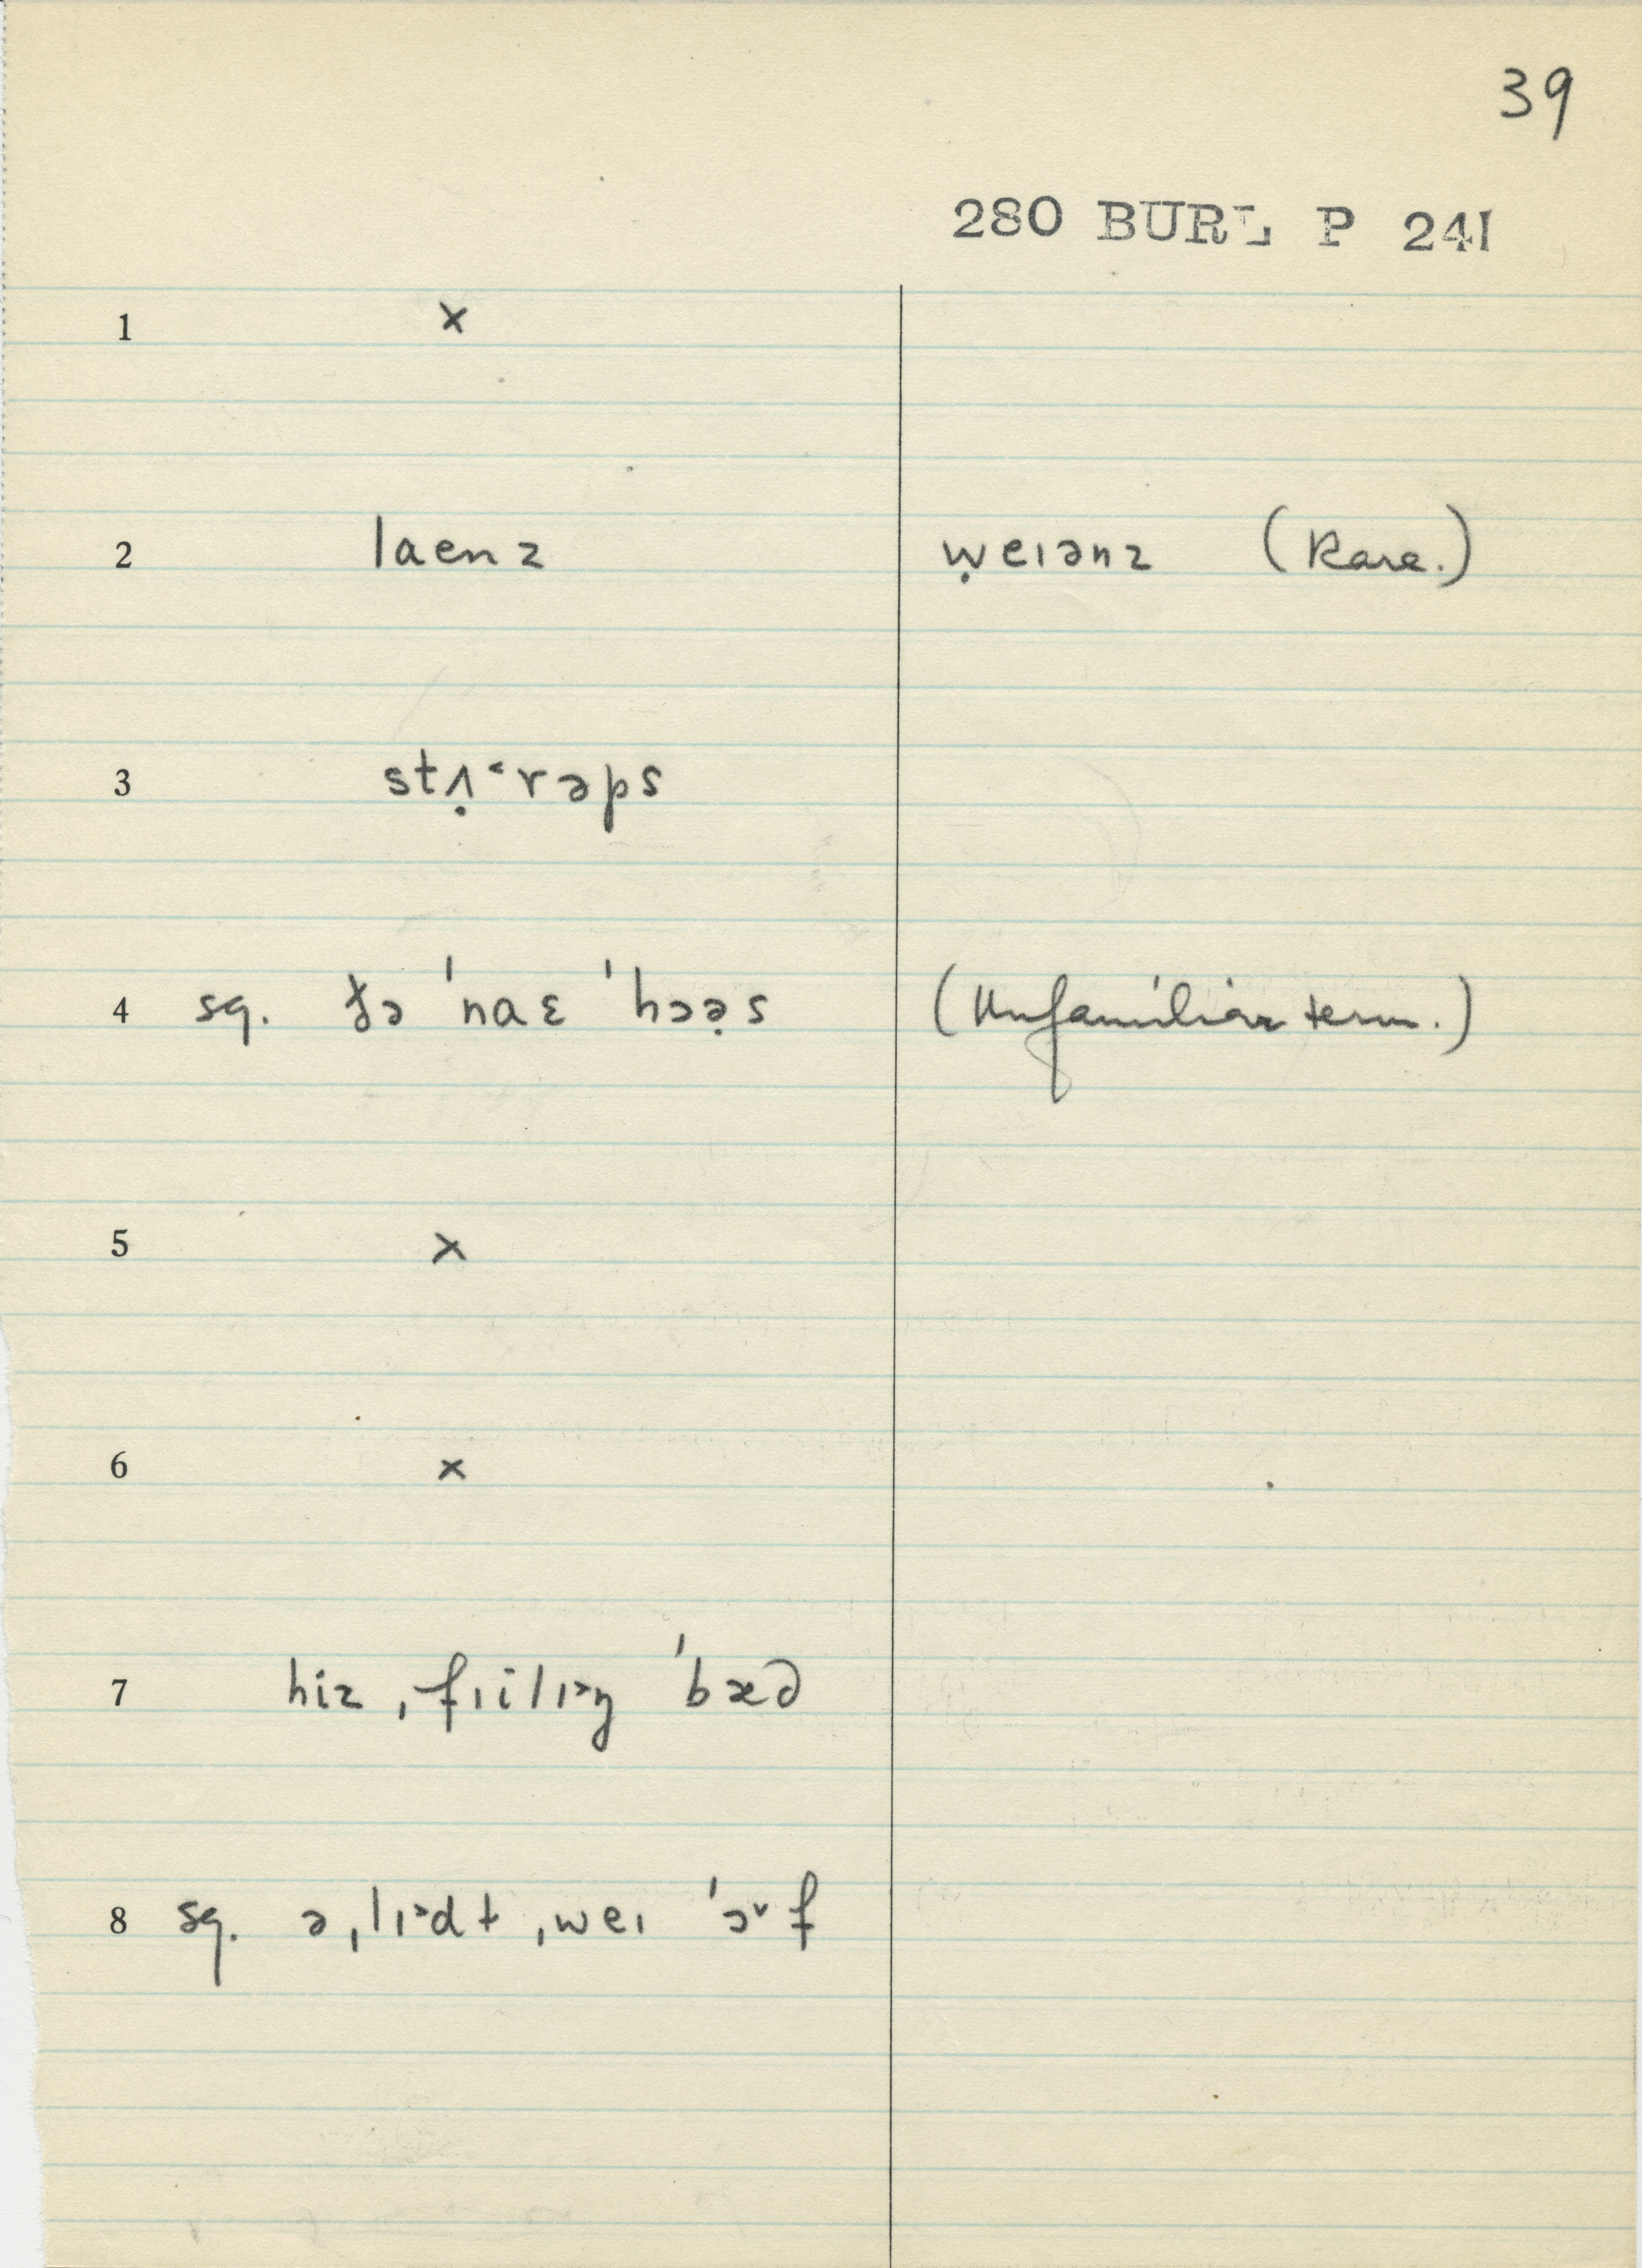 39
280 BURL P 241
1 ×
2 laenz ẉeɪənz (Rare.)
3 stʌ̣˂rəps
4 sg. ðə ˈnaɛ ˈhɔə̣s (Unfamiliar term.)
5 ×
6 ×
7 hiz ˌfɪilɪ˃ŋ ˈbæd
8 sg. ə ˌlɪ˃dɫ ˌweɪ ˈɔ˅f